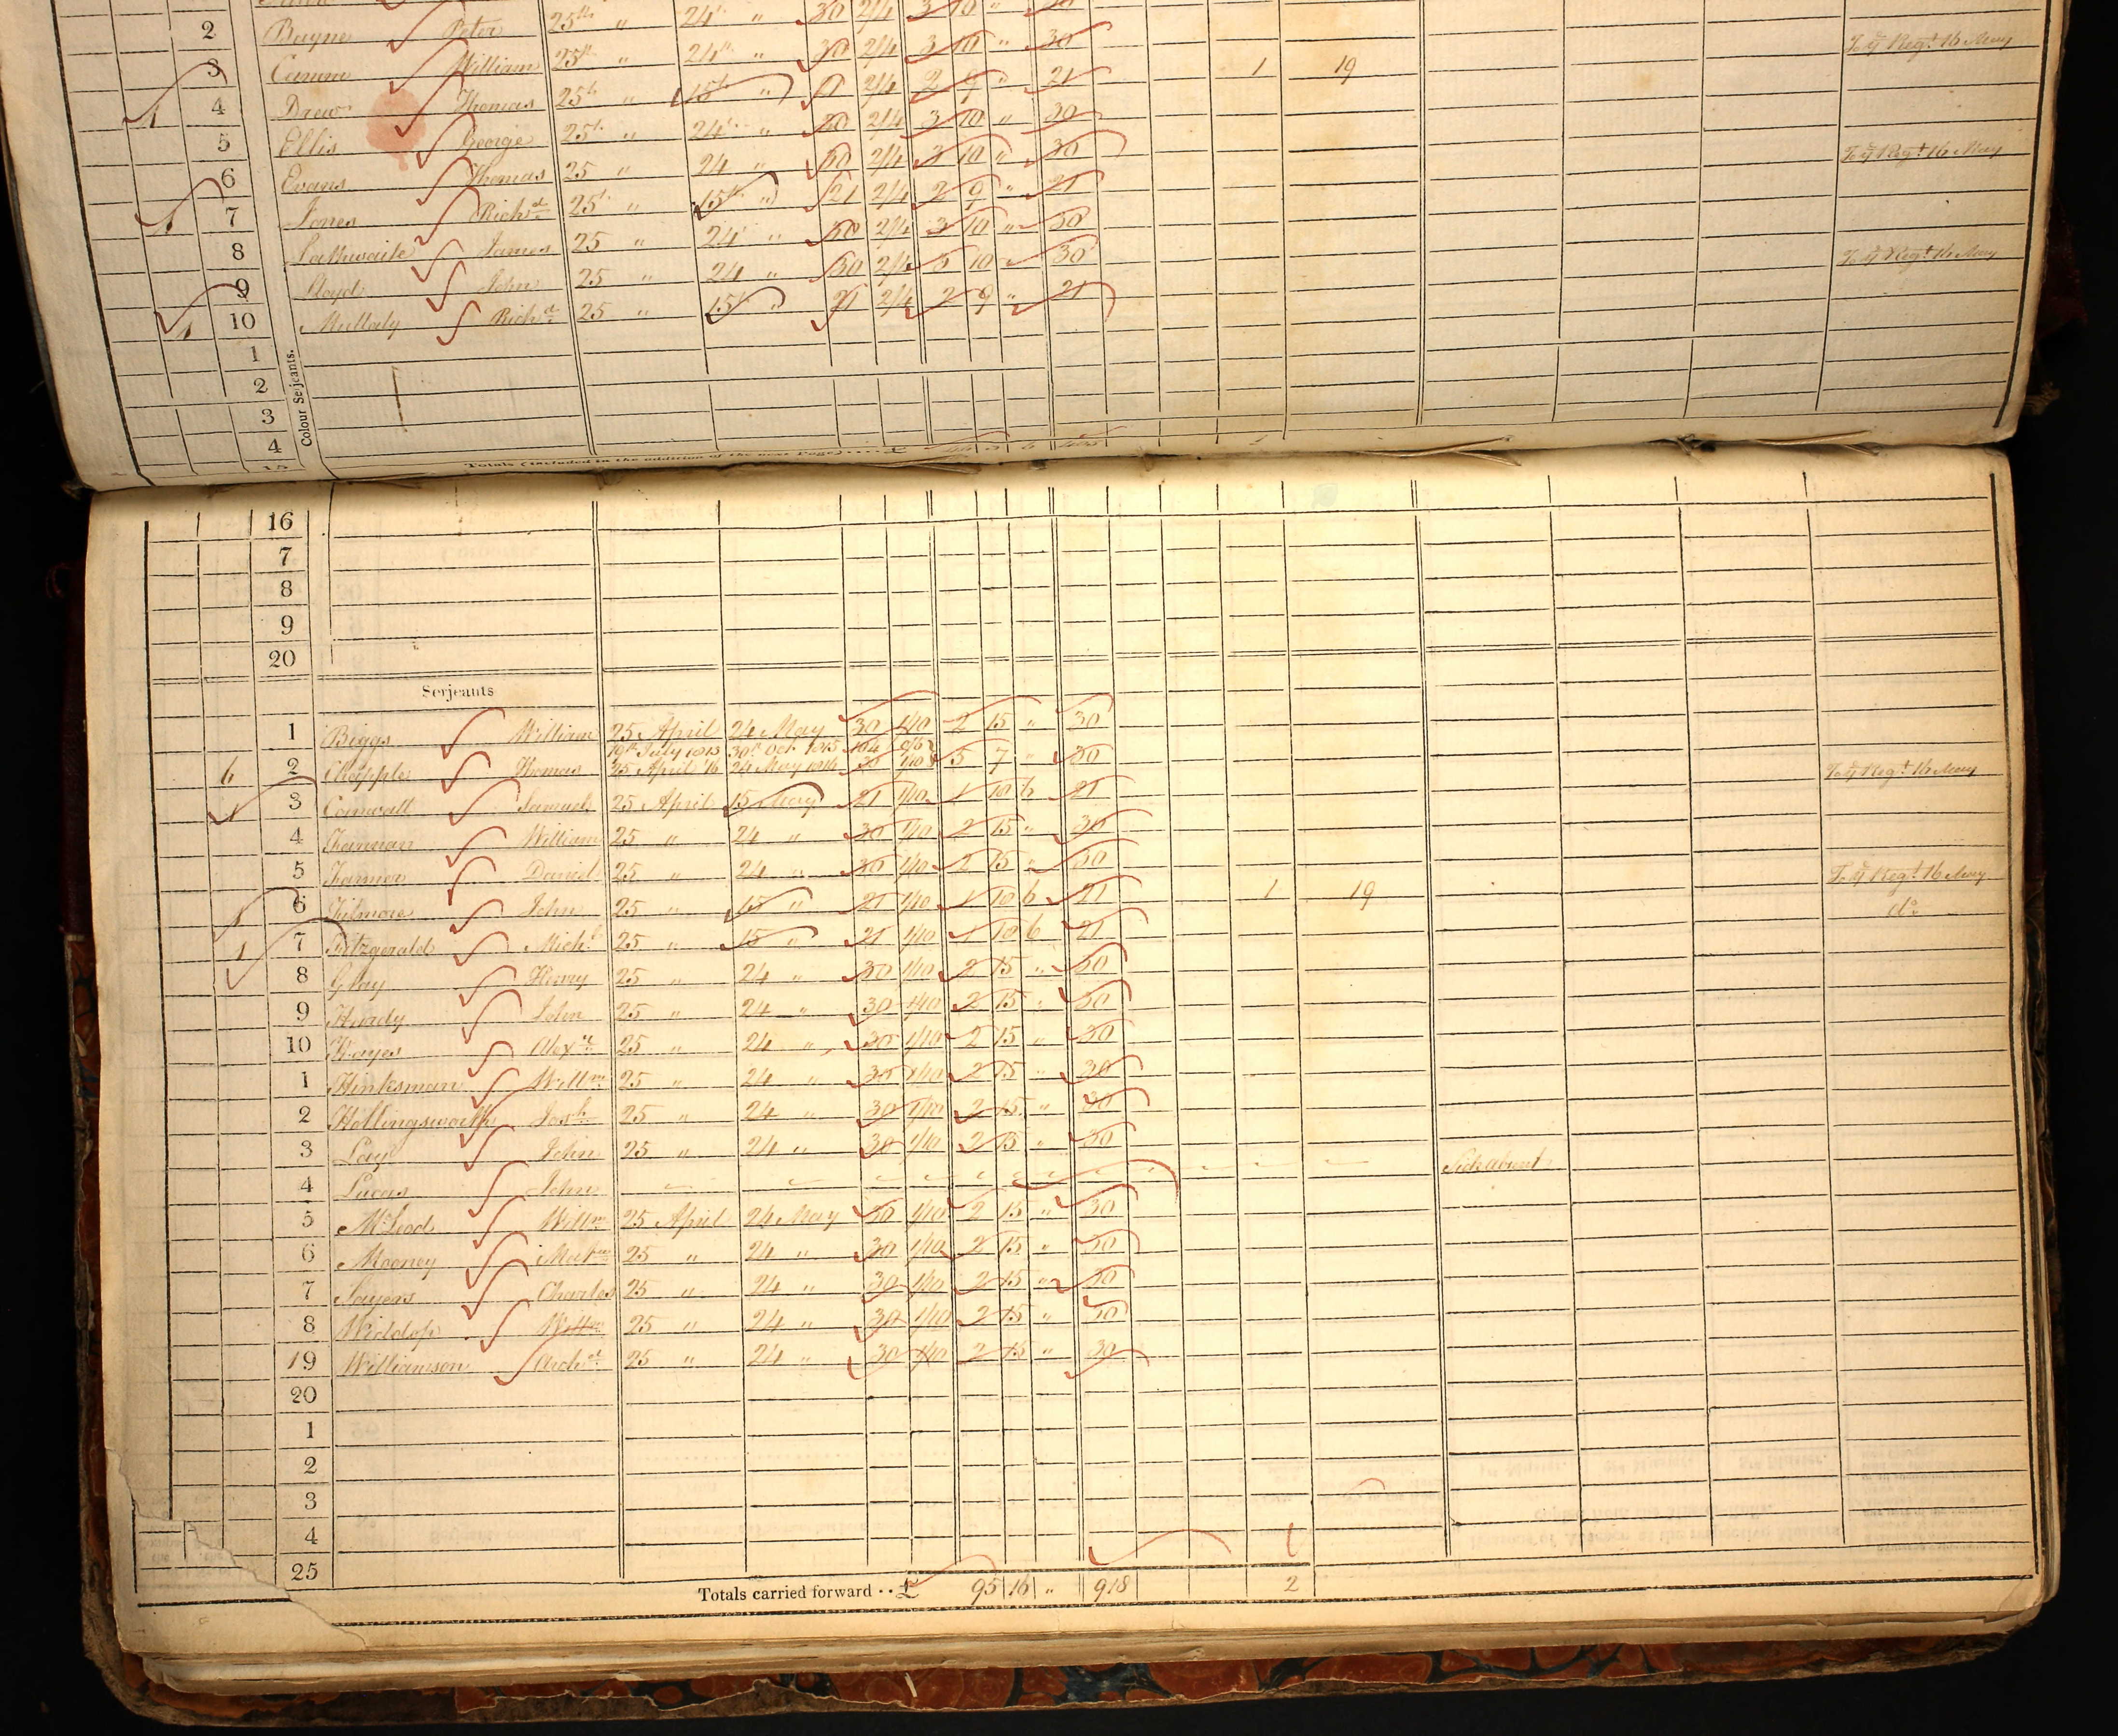 2 Payne Peter 25th " 24th " 30 2/4 3 10 " 30
3 William 25th " 24th " 30 2/4 3 10 " 30 To y Regt. 16 May
1 4 Drew Thomas 25th " 15th " 2/4 2 9 " 21 1 19
5 Ellis George 25th " 24th " 30 2/4 3 10 " 30
6 Evans Thomas 25 " 24 " 30 2/4 3 10 " 30 To y Regt. 16 May
1 7 Jones Richd. 25th " 15th " 21 2/4 2 9 " 21
8 James 25 " 24 " 30 2/4 3 10 " 30
9 Lloyd John 25 " 24 " 30 2/4 3 10 " 30 To y Regt. 16 May
1 10 Mullaly Richd. 25 " 15th " 21 2/4 2 9 " 21
1
2
3
4
15
Colour Serjeants.
Totals (included in the addition of the next Page) .... £
16
7
8
9
20
Serjeants
1 Biggs William 25 April 24 May 30 1/10 2 15 " 30
19th July 1815 30th Oct. 1815 104
6 2 Chapple Thomas 25 April '16 24 May 1816 30 1/10 5 7 " 30
1 3 Cornwall Samuel 25 April 15 May 21 1/10 1 18 6 21 To y Regt. 16 May
4 William 25 " 24 " 30 1/10 2 15 " 30
5 Farmer Daniel 25 " 24 " 30 1/10 2 15 " 30
1 6 Filmore John 25 " 15 " 21 1/10 1 18 6 21 1 19 To y Regt. 16 May
1 7 Fitzgerald Michl. 25 " 15 " 21 1/10 1 18 6 21 do.
8 Gray Henry 25 " 24 " 30 1/10 2 15 " 30
9 Hardy John 25 " 24 " 30 1/10 2 15 " 30
10 Hayes Alexr. 25 " 24 " 30 1/10 2 15 " 30
1 Hinksman Willm. 25 " 24 " 30 1/10 2 15 " 30
2 Hollingsworth Josh. 25 " 24 " 30 1/10 2 15 " 30
3 Lay John 25 " 24 " 30 1/10 2 15 " 30
4 Lucas John Sick absent
5 McLeod Willm. 25 April 24 May 30 1/10 2 15 " 30
6 Mooney 25 " 24 " 30 1/10 2 15 " 30
7 Sayers Charles 25 " 24 " 30 1/10 2 15 " 30
8 Widdop Willm. 25 " 24 " 30 1/10 2 15 " 30
19 Williamson Archd. 25 " 24 " 30 1/10 2 15 " 30
20
1
2
3
4
25
Totals carried forward .. £ 95 16 " 918 2